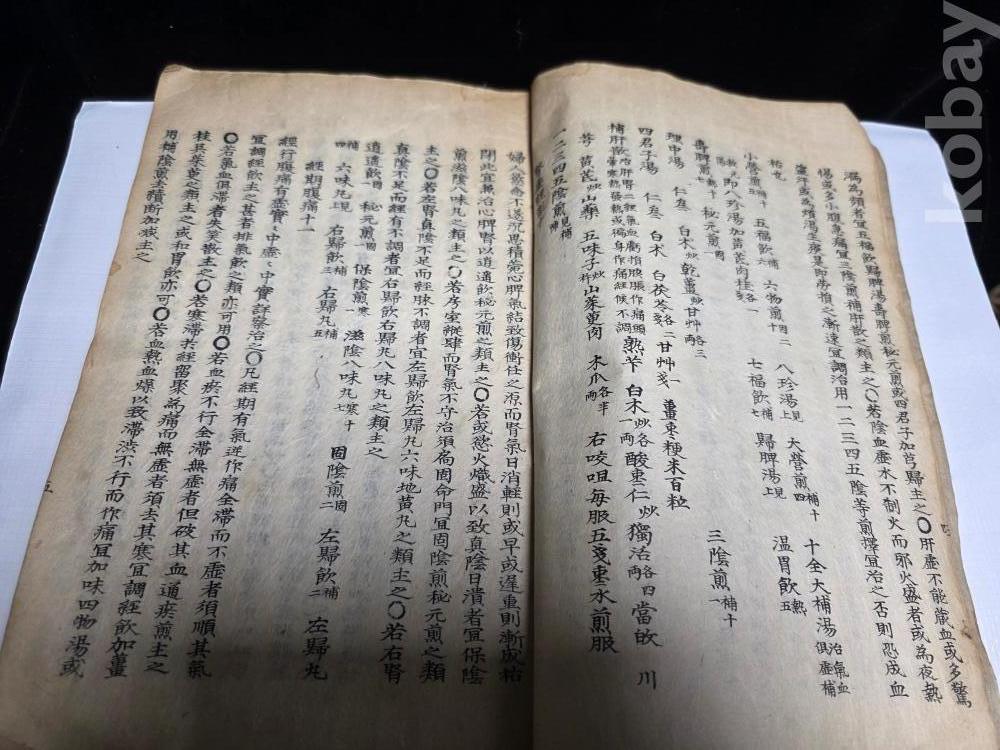 瀉為頻者宜五福飲歸脾湯壽脾煎秘元煎或四君子加芎歸主之〇肝虛不能藏血或多驚
惕或多小腹急痛宜三陰煎補肝散之類主之〇若陰血虛水不制火而邪火盛者或為夜熱
盜汗或為煩渴生痰是即勞損之漸速宜調治用一二三四五陰等煎擇宜治之否則恐成血
枯也 五福飲補六 八珍湯見上 大營煎補十四 十全大補湯治氣血俱虛補
小營煎補十五 六物煎因二十 七福飲補七 歸脾湯見上 溫胃飲熱五
壽脾煎熱十七 秘元煎固一 三陰煎補十一
理中湯 仁參 白朮炒 乾薑炒 甘艸各三兩
四君子湯 仁參 白朮 白茯苓各二 甘艸戔一 薑棗粳米百粒
補肝散 熟芐 白朮炒各一兩 酸棗仁炒 獨活各四兩 當皈 川
芎 黃芪炒 山藥 五味子炒杵 山茱萸肉 木瓜各半兩 右咬咀每服五戔棗水煎服
一二三四五陰煎見補陣
婦人欲念不遂沉思積鬱心脾氣結致傷衝任之源而腎氣日消輕則或早或遲重則漸成枯
閉此宜兼治心脾腎以逍遙飲秘元煎之類主之〇若或慾火熾盛以致真陰日潰者宜保陰
煎滋陰八味丸之類主之〇若房室縱肆而腎氣不守治須扃固命門宜固陰煎秘元煎之類
主之〇若左腎真陰不足而經脉不調者宜左歸飲左歸丸六味地黃丸之類主之〇若右腎
真陽不足而經有不調者宜右歸飲右歸丸八味丸之類主之
逍遙飲因 秘元煎固一 保陰煎寒一 滋陰八味丸寒十 固陰煎固二 左歸飲補二 左歸丸
補四 六味丸見 右歸飲補三 右歸丸補五
經期腹痛十一
經行腹痛有虛實虛中實詳察治之〇凡經期有氣逆作痛全滯而不虛者須順其氣
宜調經飲主之甚者排氣飲之類亦可用〇若血瘀不行全滯無虛者但破其血通瘀煎主之
〇若氣血俱滯者失笑散主之〇若寒滯於經留聚為痛而無虛者須去其寒宜調經飲加薑
桂吳茱萸之類主之或和胃飲亦可〇若熱血燥以致滯澁不行而作痛宜加味四物湯或
用補陰煎去積斷加減主之
五